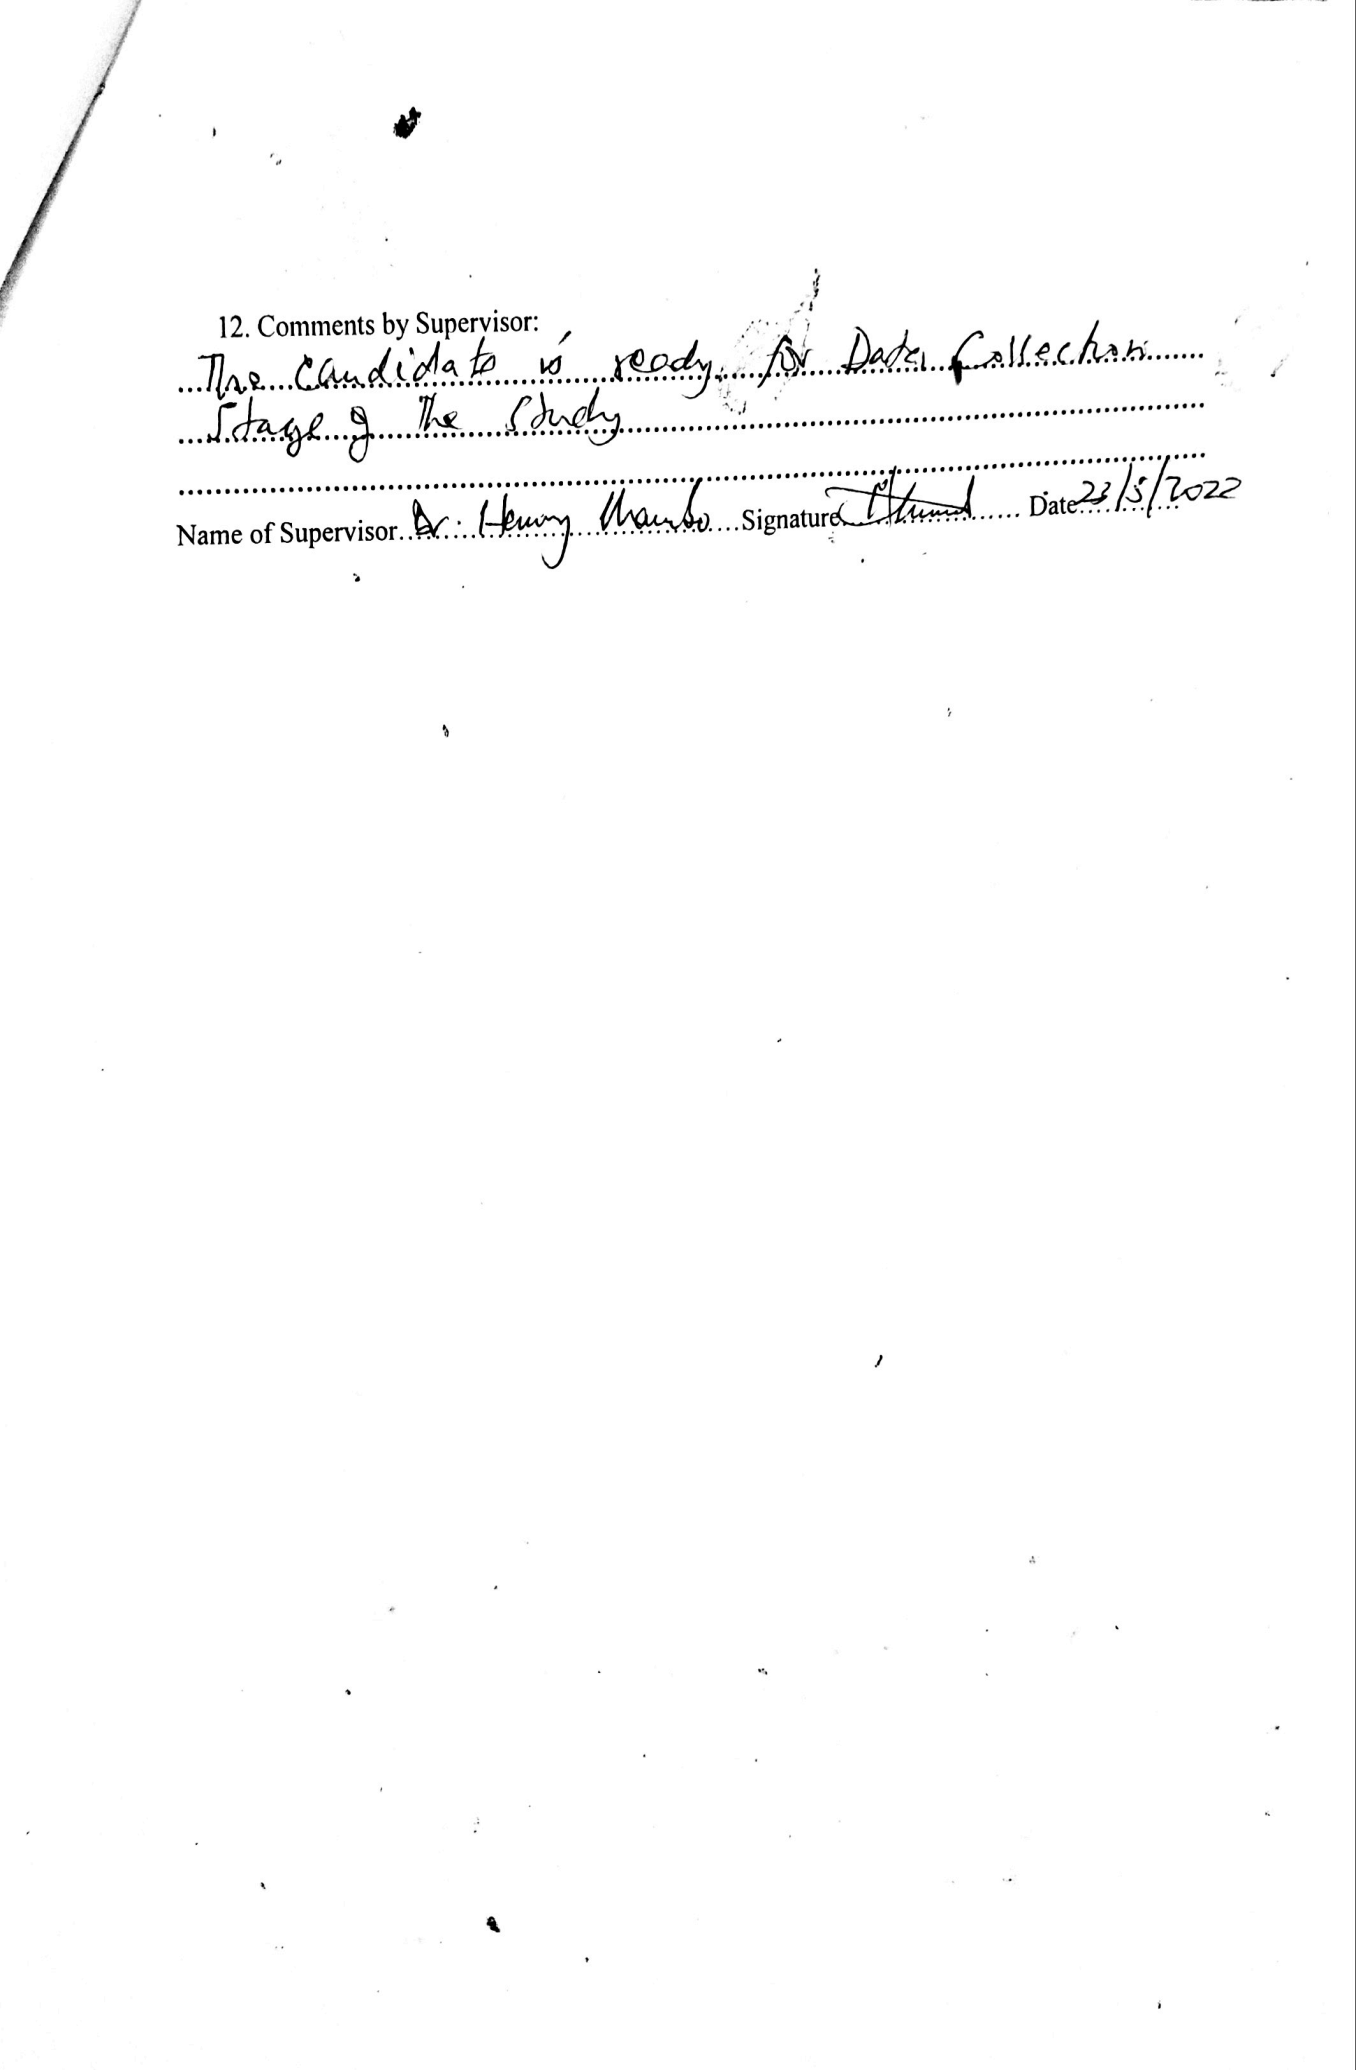 12. Comments by Supervisor:
The candidate is ready for Data Collection
Stage of the study
Name of Supervisor Dr. Henry Signature Date 23/5/2022